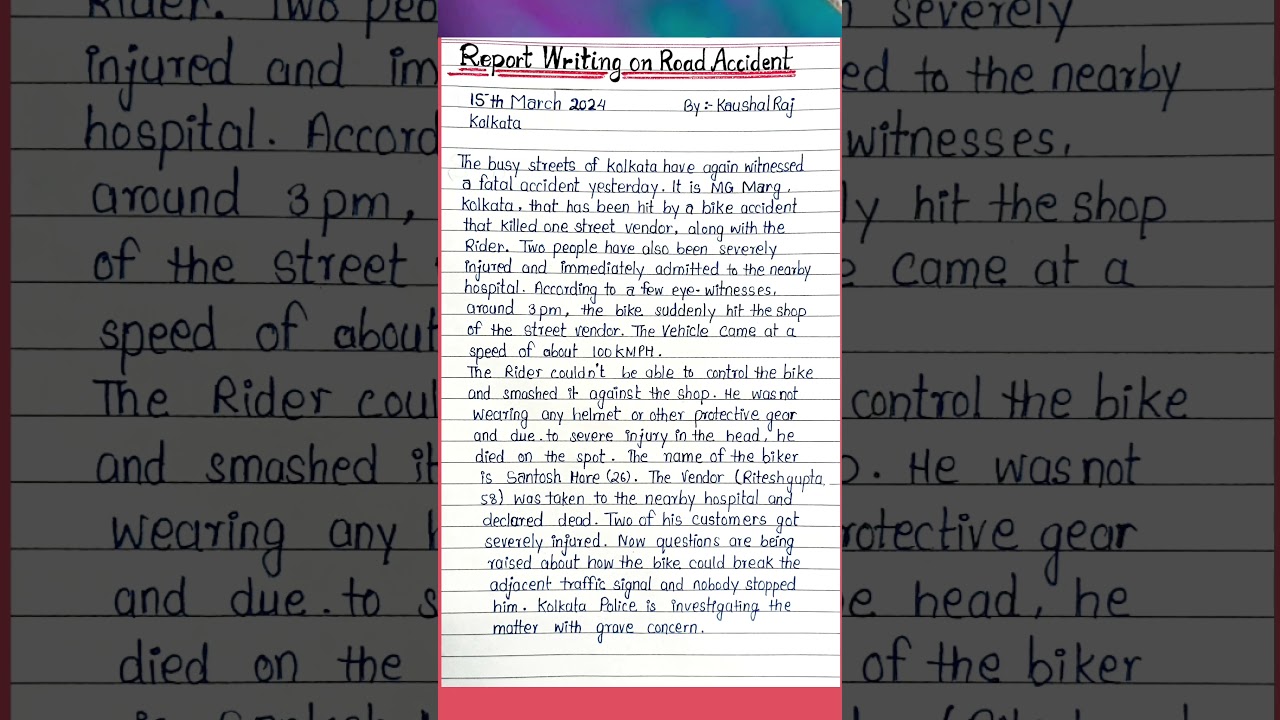 Report Writing on Road Accident
15th March 2024 By :- Kaushal Raj
Kolkata
The busy streets of Kolkata have again witnessed
a fatal accident yesterday. It is MG Marg,
Kolkata, that has been hit by a bike accident
that killed one street vendor, along with the
Rider. Two people have also been severely
injured and immediately admitted to the nearby
hospital. According to a few eye-witnesses,
around 3pm, the bike suddenly hit the shop
of the street vendor. The Vehicle came at a
speed of about 100 KMPH.
The Rider couldn't be able to control the bike
and smashed it against the shop. He was not
wearing any helmet or other protective gear
and due.to severe injury in the head, he
died on the spot. The name of the biker
is Santosh Hore (26). The Vendor (Ritesh gupta,
58) was taken to the nearby hospital and
declared dead. Two of his customers got
severely injured. Now questions are being
raised about how the bike could break the
adjacent traffic signal and nobody stopped
him. Kolkata Police is investigating the
matter with grave concern.